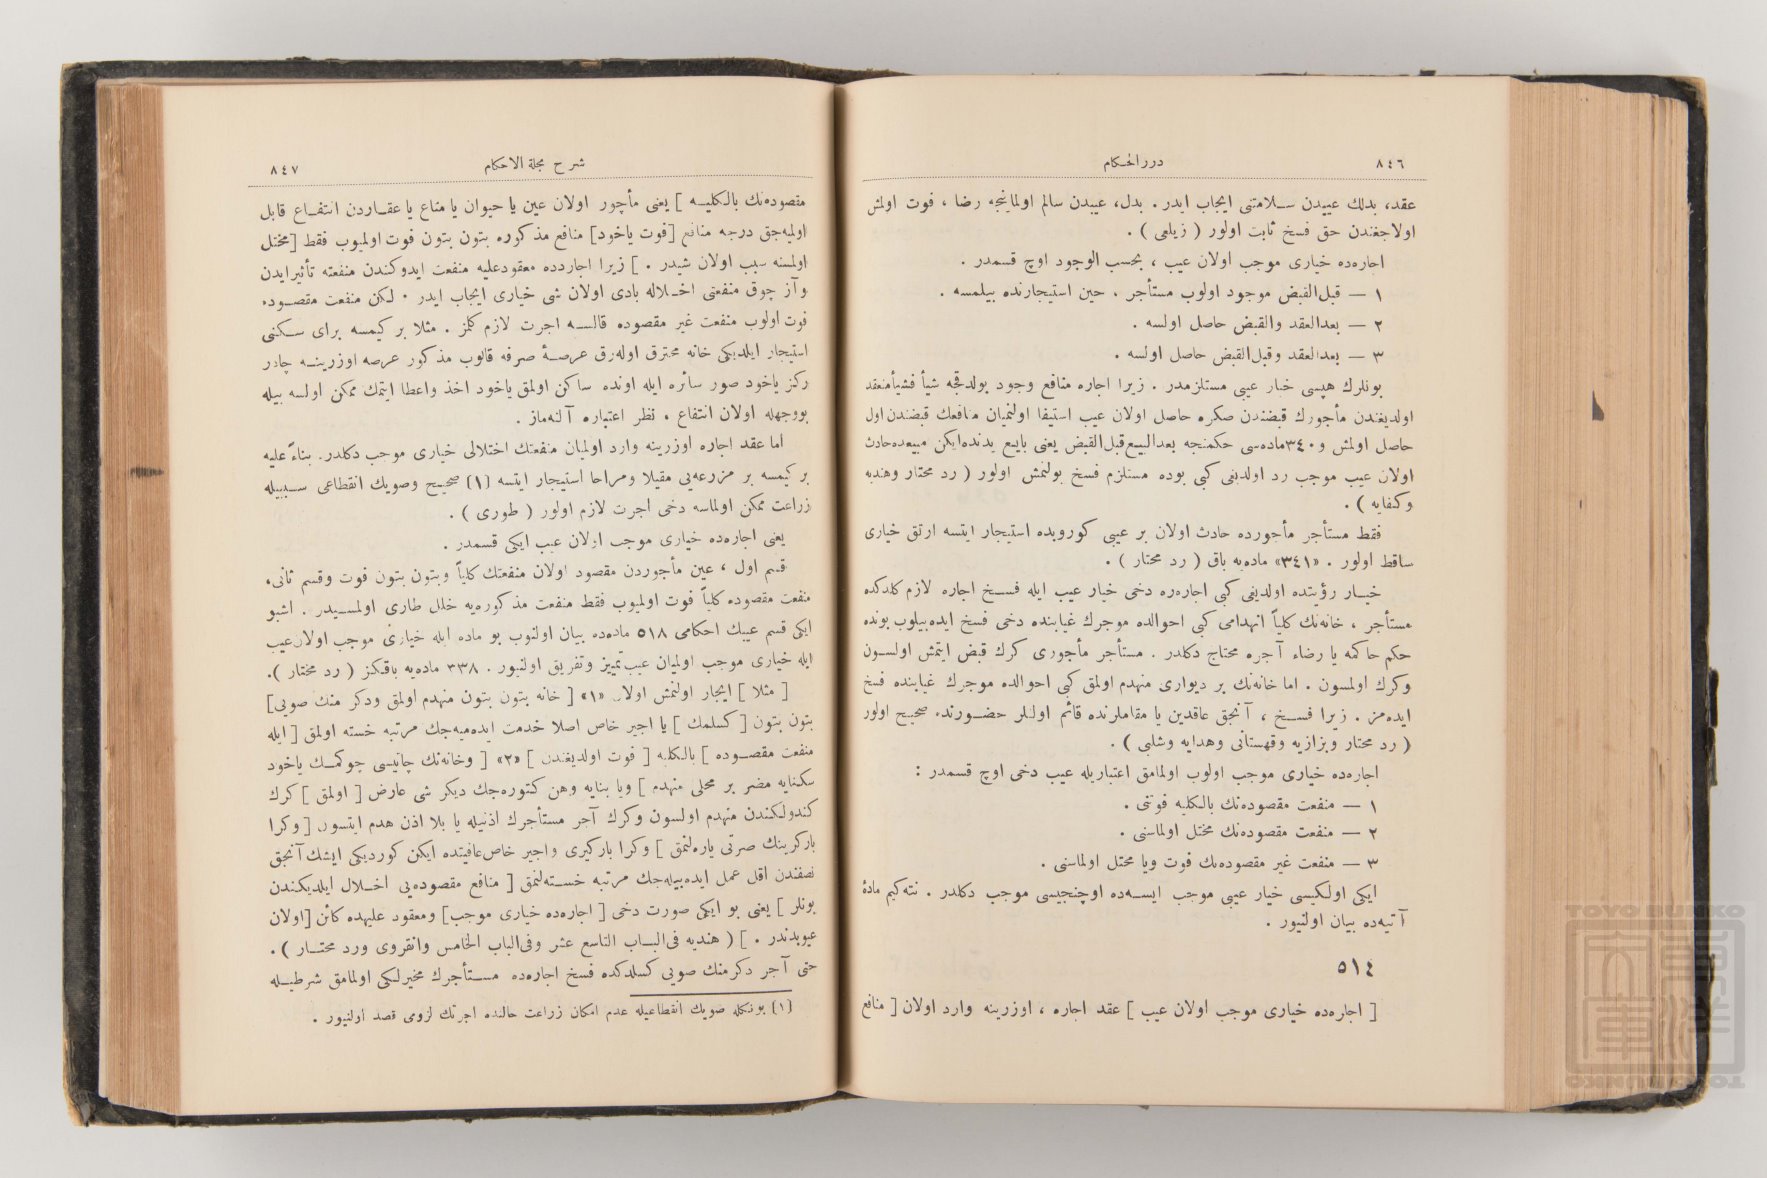 ٨٤٦
دررالحكام
عقد، بدلك عيبدن سلامتنى ايجاب ايدر . بدل، عيبدن سالم اولماينجه رضا ، فوت اولمش
اولاجغندن حق فسخ ثابت اولور ( زيلعى ) .
اجاره‌ده خيارى موجب اولان عيب ، بحسب الوجود اوچ قسمدر .
١ — قبل‌القبض موجود اولوب مستأجر ، حين استيجارنده بيلمسه .
٢ — بعدالعقد والقبض حاصل اولسه .
٣ — بعدالعقد وقبل‌القبض حاصل اولسه .
بونلرك هپسى خيار عيبى مستلزمدر . زيرا اجاره منافع وجود بولدقجه شيأ فشيأ منعقد
اولديغندن مأجورك قبضندن صكره حاصل اولان عيب استيفا اولنميان منافعك قبضندن اول
حاصل اولمش و ٣٤٠ ماده‌سى حكمنجه بعدالبيع قبل‌القبض يعنى بايع يدنده‌ايكن مبيعده حادث
اولان عيب موجب رد اولديغى كبى بوده مستلزم فسخ بولنمش اولور ( رد محتار وهنديه
وكفايه ) .
فقط مستأجر مأجورده حادث اولان بر عيبى كوروبده استيجار ايتسه ارتق خيارى
ساقط اولور . «٣٤١» ماده‌يه باق ( رد محتار ) .
خيار رؤيتده اولديغى كبى اجاره‌ده دخى خيار عيب ايله فسخ اجاره لازم كلدكده
مستأجر ، خانه‌نك كلياً انهدامى كبى احوالده موجرك غيابنده دخى فسخ ايده‌بيلوب بونده
حكم حاكمه يا رضاء آجره محتاج دكلدر . مستأجر مأجورى كرك قبض ايتمش اولسون
وكرك اولمسون . اما خانه‌نك بر ديوارى منهدم اولمق كبى احوالده موجرك غيابنده فسخ
ايده‌مز . زيرا فسخ ، آنجق عاقدين يا مقاملرنده قائم اولنلر حضورنده صحيح اولور
( رد محتار وبزازيه وقهستانى وهدايه وشلبى ) .
اجاره‌ده خيارى موجب اولوب اولمامق اعتباريله عيب دخى اوچ قسمدر :
١ — منفعت مقصوده‌نك بالكليه فوتى .
٢ — منفعت مقصوده‌نك مختل اولماسى .
٣ — منفعت غير مقصوده‌نك فوت ويا مختل اولماسى .
ايكى اولكيسى خيار عيبى موجب ايسه‌ده اوچنجيسى موجب دكلدر . نته‌كيم مادۀ
آتيه‌ده بيان اولنيور .
٥١٤
[ اجاره‌ده خيارى موجب اولان عيب ] عقد اجاره ، اوزرينه وارد اولان [ منافع
شرح مجلة الاحكام
٨٤٧
مقصوده‌نك بالكليه ] يعنى مأجور اولان عين يا حيوان يا متاع يا عقاردن انتفاع قابل
اولميه‌جق درجه منافع [فوت ياخود] منافع مذكوره بتون بتون فوت اولميوب فقط [مختل
اولمسنه سبب اولان شيدر . ] زيرا اجارده معقودعليه منفعت ايدوكندن منفعته تأثير ايدن
وآز چوق منفعتى اخلاله بادى اولان شى خيارى ايجاب ايدر . لكن منفعت مقصوده
فوت اولوب منفعت غير مقصوده قالسه اجرت لازم كلمز . مثلا بر كيمسه براى سكنى
استيجار ايلديكى خانه محترق اوله‌رق عرصۀ صرفه قالوب مذكور عرصه اوزرينه چادر
ركز ياخود صور سائره ايله اونده ساكن اولمق ياخود اخذ واعطا ايتمك ممكن اولسه بيله
بووجهله اولان انتفاع ، نظر اعتباره آلنه‌ماز .
اما عقد اجاره اوزرينه وارد اولميان منفعتك اختلالى خيارى موجب دكلدر. بناءً عليه
بر كيمسه بر مزرعه‌يى مقيلا ومراحا استيجار ايتسه (١) صحيح وصويك انقطاعى سببيله
زراعت ممكن اولماسه دخى اجرت لازم اولور ( طورى ) .
يعنى اجاره‌ده خيارى موجب اولان عيب ايكى قسمدر .
قسم اول ، عين مأجوردن مقصود اولان منفعتك كلياً وبتون بتون فوت وقسم ثانى،
منفعت مقصوده كلياً فوت اولميوب فقط منفعت مذكوره‌يه خلل طارى اولمسيدر . اشبو
ايكى قسم عيبك احكامى ٥١٨ ماده‌ده بيان اولنوب بو ماده ايله خيارى موجب اولان عيب
ايله خيارى موجب اولميان عيب تمييز وتفريق اولنيور . ٣٣٨ ماده‌يه باقكز ( رد محتار ).
[ مثلا ] ايجار اولنمش اولان «١» [ خانه بتون بتون منهدم اولمق ودكرمنك صويى]
بتون بتون [ كسلمك ] يا اجير خاص اصلا خدمت ايده‌ميه‌جك مرتبه خسته اولمق [ ايله
منفعت مقصوده ] بالكليه [ فوت اولديغندن ] «٢» [ وخانه‌نك چاتيسى چوكمك ياخود
سكنايه مضر بر محلى منهدم ] ويا بنايه وهن كتوره‌جك ديكر شى عارض [ اولمق ] كرك
كندولكندن منهدم اولسون وكرك آجر مستأجرك اذنيله يا بلا اذن هدم ايتسون [ وكرا
باركرينك صرتى ياره‌لنمق ] وكرا باركيرى واجير خاص عافيتده ايكن كورديكى ايشك آنجق
نصفندن اقل عمل ايده‌بيله‌جك مرتبه خسته‌لنمق [ منافع مقصوده‌يى اخلال ايلديكندن
بونلر ] يعنى بو ايكى صورت دخى [ اجاره‌ده خيارى موجب] ومعقود عليهده كائن [اولان
عيوبدندر . ] ( هنديه فى‌الباب التاسع عشر وفى‌الباب الخامس وانقروى ورد محتار ) .
حتى آجر دكرمنك صويى كسلدكده فسخ اجاره‌ده مستأجرك مخيرلكى اولمامق شرطيله
(١) بونكله صويك انقطاعيله عدم امكان زراعت حالنده اجرتك لزومى قصد اولنيور .
TOYO BUNKO